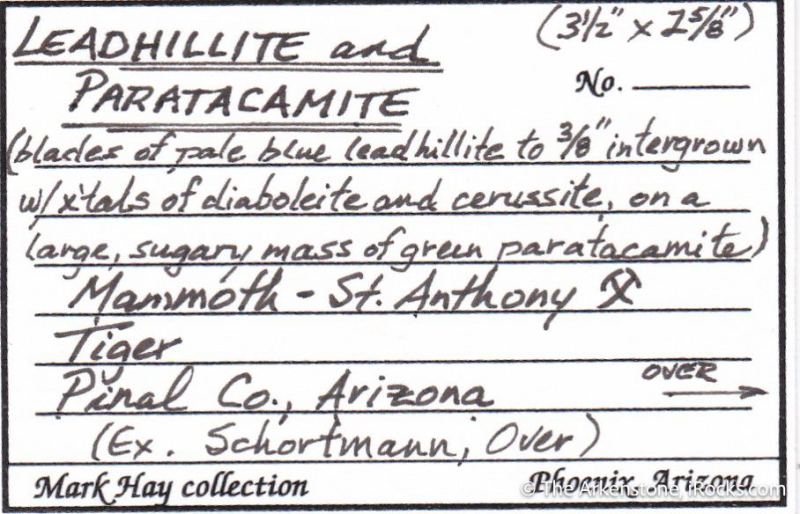 LEADHILLITE and (3½" x 2⅝")
PARATACAMITE No.
(blades of pale blue leadhillite to ⅜" intergrown
w/x'tals of diaboleite and cerussite, on a
large, sugary mass of green paratacamite)
Mammoth - St. Anthony ⚒
Tiger
Pinal Co., Arizona OVER →
(Ex. Schortmann; Over)
Mark Hay collection Phoenix, Arizona
© The Arkenstone, iRocks.com